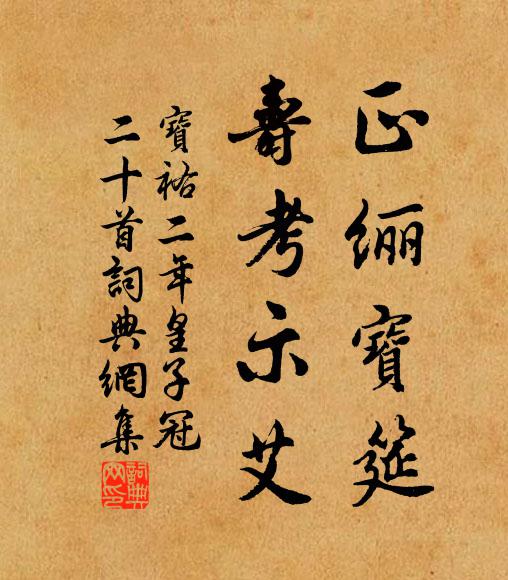 正纚寶筵
壽考示艾
寶祐二年皇子冠
二十首詞典網集
詞典网印